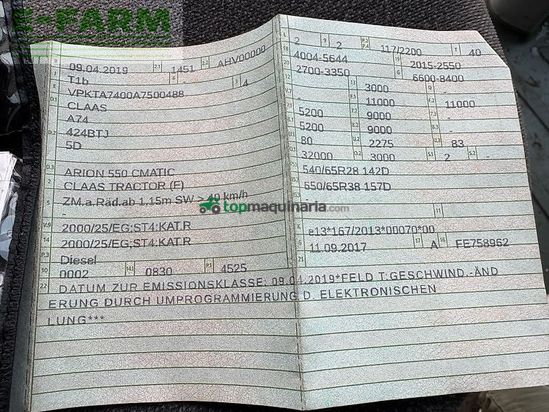 E-FARM
09.04.2019 1451 AHV00000
T1b
VPKTA7400A7500488 4
CLAAS
A74
424BTJ
5D
ARION 550 CMATIC
CLAAS TRACTOR (F)
ZM.a.Räd.ab 1,15m SW > 40 km/h
-
2000/25/EG;ST4:KAT.R
2000/25/EG;ST4:KAT.R
Diesel
0002 0830 4525
2 2 117/2200 40
4004-5644 2015-2550
2700-3350 6600-8400
- 3000 -
- 11000 11000
5200 9000 -
5200 9000 -
80 2275 83
32000 3000 2 -
540/65R28 142D
650/65R38 157D
-
-
e13*167/2013*00070*00
11.09.2017 A FE758962
DATUM ZUR EMISSIONSKLASSE: 09.04.2019*FELD T:GESCHWIND.-ÄND
ERUNG DURCH UMPROGRAMMIERUNG D. ELEKTRONISCHEN
LUNG***
topmaquinaria.com